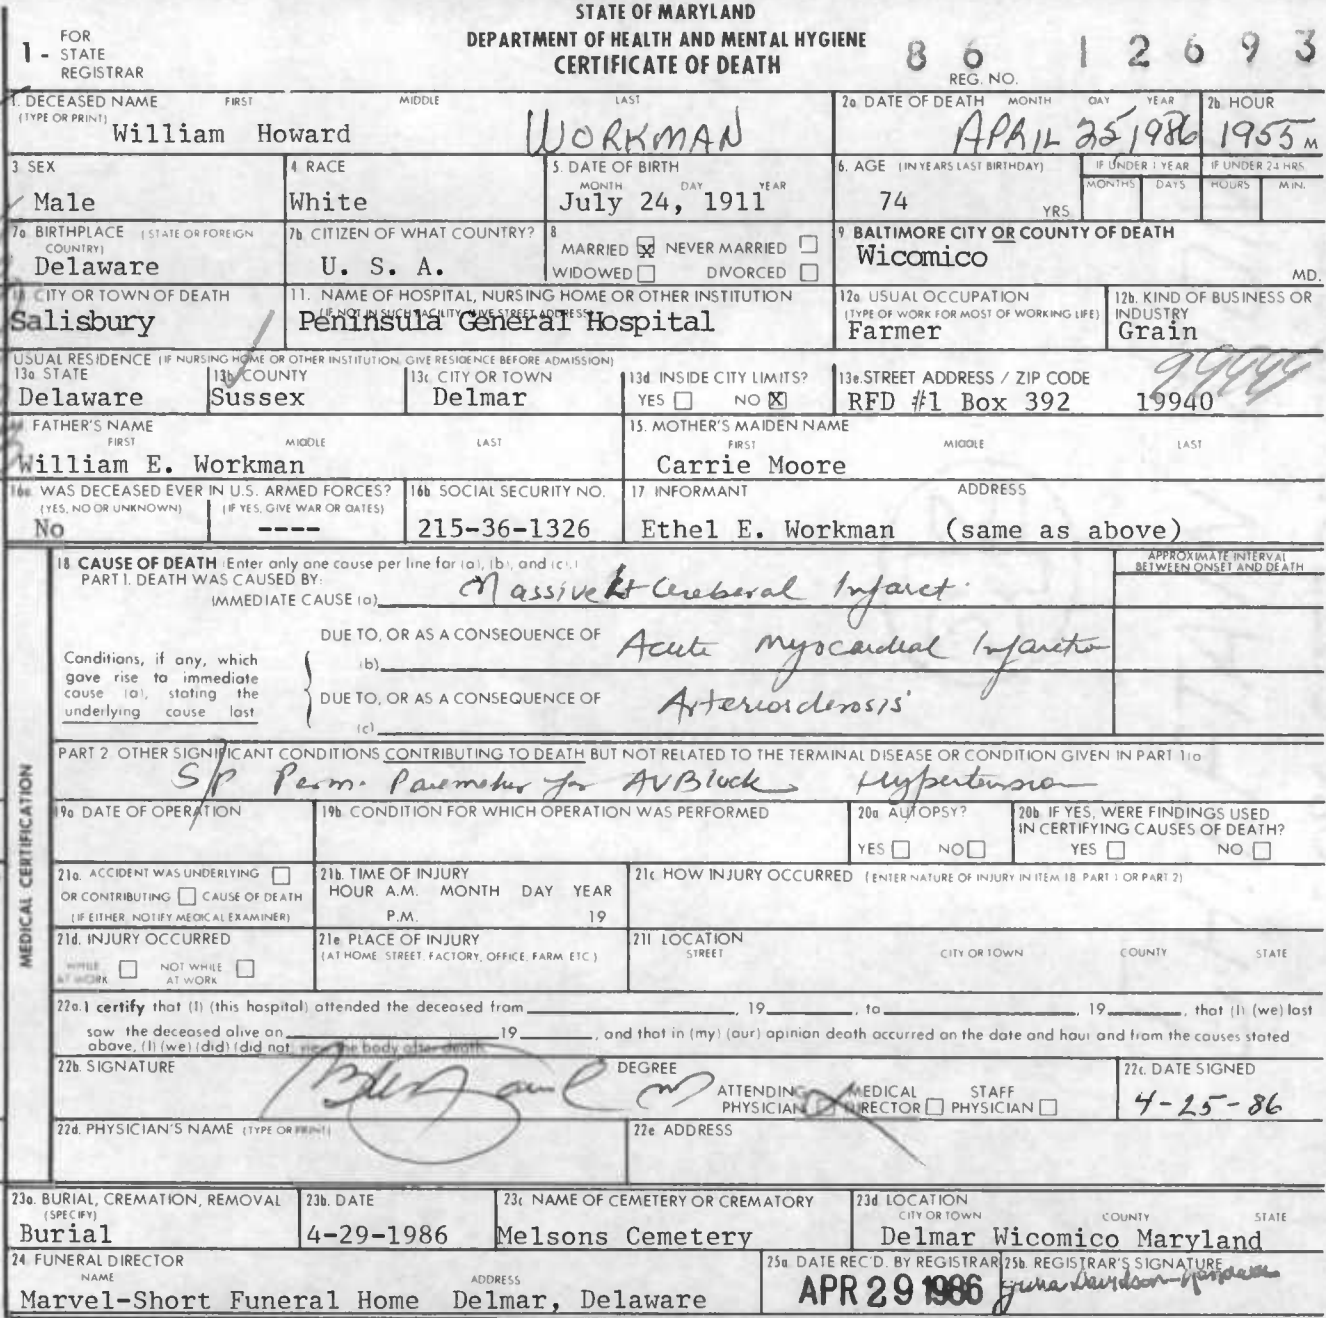 STATE OF MARYLAND
DEPARTMENT OF HEALTH AND MENTAL HYGIENE
CERTIFICATE OF DEATH
1 - FOR STATE REGISTRAR
86 12693
REG. NO.
1. DECEASED NAME FIRST MIDDLE LAST
(TYPE OR PRINT)
William Howard WORKMAN
2a DATE OF DEATH MONTH DAY YEAR
APRIL 25 1986
2b HOUR
1955 M
3 SEX
Male
4 RACE
White
5. DATE OF BIRTH
MONTH DAY YEAR
July 24, 1911
6. AGE (IN YEARS LAST BIRTHDAY)
74 YRS
IF UNDER 1 YEAR
MONTHS DAYS
IF UNDER 24 HRS
HOURS MIN.
7a BIRTHPLACE (STATE OR FOREIGN COUNTRY)
Delaware
7b CITIZEN OF WHAT COUNTRY?
U. S. A.
8
MARRIED X NEVER MARRIED
WIDOWED DIVORCED
9 BALTIMORE CITY OR COUNTY OF DEATH
Wicomico
MD.
CITY OR TOWN OF DEATH
Salisbury
11. NAME OF HOSPITAL, NURSING HOME OR OTHER INSTITUTION
(IF NOT IN SUCH FACILITY, GIVE STREET ADDRESS)
Peninsula General Hospital
12a USUAL OCCUPATION
(TYPE OF WORK FOR MOST OF WORKING LIFE)
Farmer
12b. KIND OF BUSINESS OR INDUSTRY
Grain
USUAL RESIDENCE (IF NURSING HOME OR OTHER INSTITUTION, GIVE RESIDENCE BEFORE ADMISSION)
13a STATE
Delaware
13b COUNTY
Sussex
13c CITY OR TOWN
Delmar
13d INSIDE CITY LIMITS?
YES NO X
13e. STREET ADDRESS / ZIP CODE
99999
RFD #1 Box 392 19940
FATHER'S NAME
FIRST MIDDLE LAST
William E. Workman
15. MOTHER'S MAIDEN NAME
FIRST MIDDLE LAST
Carrie Moore
16a WAS DECEASED EVER IN U.S. ARMED FORCES?
(YES, NO OR UNKNOWN) (IF YES, GIVE WAR OR DATES)
No ----
16b SOCIAL SECURITY NO.
215-36-1326
17 INFORMANT ADDRESS
Ethel E. Workman (same as above)
MEDICAL CERTIFICATION
18 CAUSE OF DEATH (Enter only one cause per line for (a), (b), and (c).)
APPROXIMATE INTERVAL BETWEEN ONSET AND DEATH
PART 1. DEATH WAS CAUSED BY:
IMMEDIATE CAUSE (a) Massive Cerebral Infarct.
DUE TO, OR AS A CONSEQUENCE OF
(b) Acute Myocardial Infarction
Conditions, if any, which gave rise to immediate cause (a), stating the underlying cause last
DUE TO, OR AS A CONSEQUENCE OF
(c) Arteriosclerosis
PART 2 OTHER SIGNIFICANT CONDITIONS CONTRIBUTING TO DEATH BUT NOT RELATED TO THE TERMINAL DISEASE OR CONDITION GIVEN IN PART 1(a)
S/P Perm. Pacemaker for AV Block Hypertension
19a DATE OF OPERATION
19b CONDITION FOR WHICH OPERATION WAS PERFORMED
20a AUTOPSY?
YES NO
20b IF YES, WERE FINDINGS USED IN CERTIFYING CAUSES OF DEATH?
YES NO
21a. ACCIDENT WAS UNDERLYING
OR CONTRIBUTING CAUSE OF DEATH
(IF EITHER, NOTIFY MEDICAL EXAMINER)
21b. TIME OF INJURY
HOUR A.M. MONTH DAY YEAR
P.M. 19
21c HOW INJURY OCCURRED (ENTER NATURE OF INJURY IN ITEM 18, PART 1 OR PART 2)
21d. INJURY OCCURRED
WHILE AT WORK NOT WHILE AT WORK
21e PLACE OF INJURY
(AT HOME, STREET, FACTORY, OFFICE, FARM ETC.)
21f LOCATION
STREET CITY OR TOWN COUNTY STATE
22a. I certify that (I) (this hospital) attended the deceased from , 19 , to , 19 , that (I) (we) last
saw the deceased alive on 19 , and that in (my) (our) opinion death occurred on the date and hour and from the causes stated
above, (I) (we) (did) (did not) view the body after death.
22b. SIGNATURE
DEGREE
ATTENDING PHYSICIAN MEDICAL DIRECTOR STAFF PHYSICIAN
22c. DATE SIGNED
4-25-86
22d. PHYSICIAN'S NAME (TYPE OR PRINT)
22e ADDRESS
23a. BURIAL, CREMATION, REMOVAL
(SPECIFY)
Burial
23b. DATE
4-29-1986
23c NAME OF CEMETERY OR CREMATORY
Melsons Cemetery
23d LOCATION
CITY OR TOWN COUNTY STATE
Delmar Wicomico Maryland
24 FUNERAL DIRECTOR
NAME ADDRESS
Marvel-Short Funeral Home Delmar, Delaware
25a DATE REC'D. BY REGISTRAR
APR 29 1986
25b. REGISTRAR'S SIGNATURE